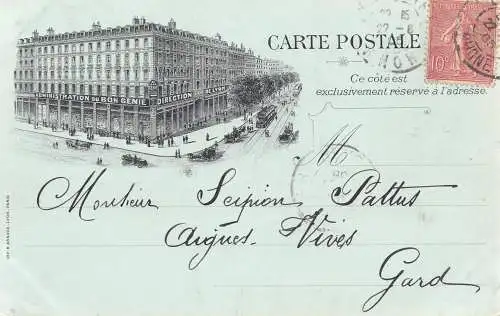 CARTE POSTALE
Ce côté est
exclusivement réservé à l'adresse.
ADMINISTRATION DU BON GENIE DIRECTION DE LYON
M
Monsieur Scipion Pattus
Aigues-Vives
Gard
10c